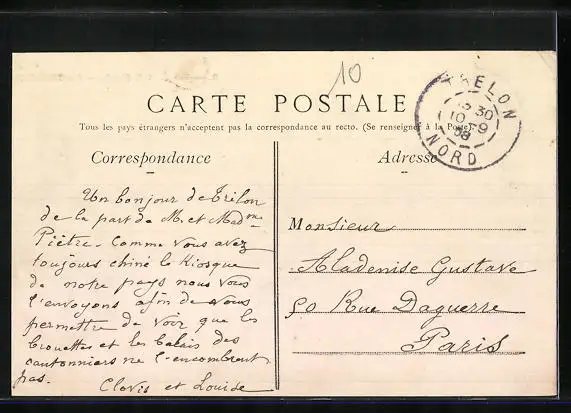 10
CARTE POSTALE
Tous les pays étrangers n'acceptent pas la correspondance au recto. (Se renseigner à la Poste).
Correspondance
Un bonjour de Trélon
de la part de M. et Mad^me
Piètre. Comme vous avez
toujours chiné le Kiosque
de notre pays nous vous
l'envoyons afin de vous
permettre de voir que les
brouettes et les balais des
cantonniers ne l'encombrent
pas.
Clovis et Louise
Adresse
Monsieur
Aladenise Gustave
50 Rue Daguerre
Paris
TRELON
30
10 9
08
NORD